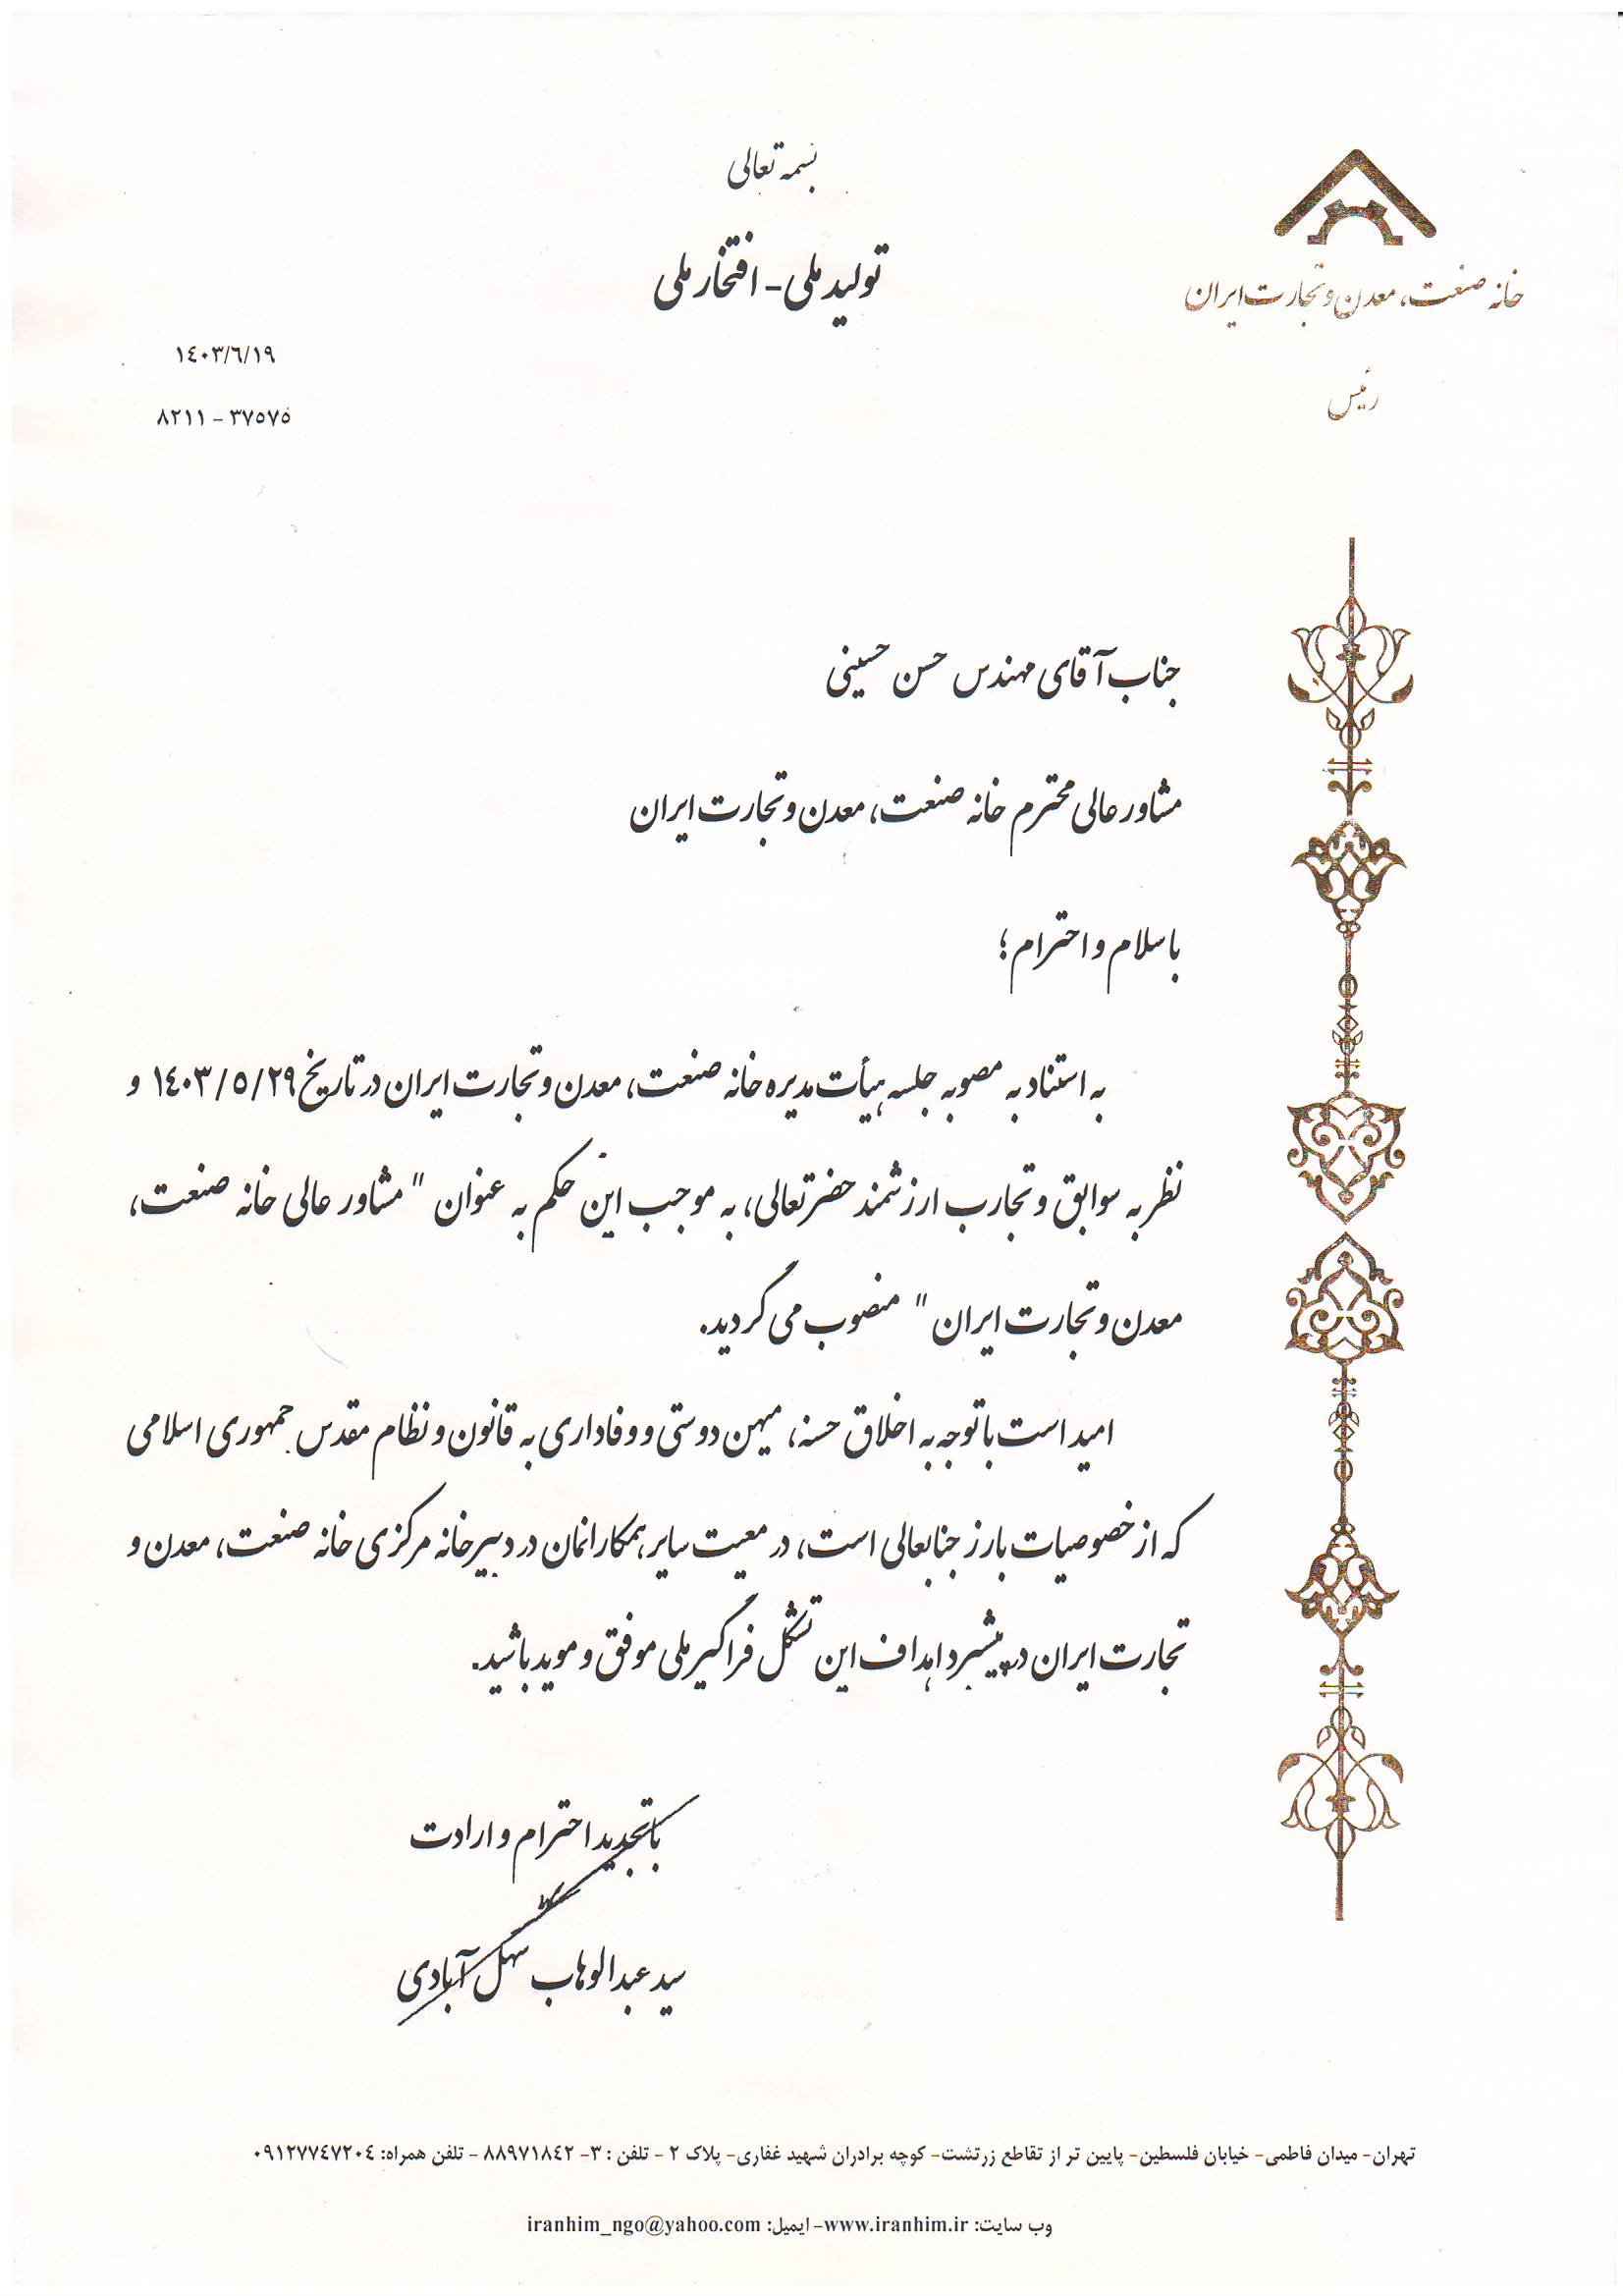 بسمه تعالی
تولید ملی - افتخار ملی
خانه صنعت، معدن و تجارت ایران
رئیس
١٤٠٣/٦/١٩
٨٢١١ - ٣٧٥٧٥
جناب آقای مهندس حسن حسینی
مشاور عالی محترم خانه صنعت، معدن و تجارت ایران
با سلام و احترام؛
به استناد به مصوبه جلسه هیأت مدیره خانه صنعت، معدن و تجارت ایران در تاریخ ١٤٠٣/٥/٢٩ و
نظر به سوابق و تجارب ارزشمند حضرتعالی، به موجب این حکم به عنوان " مشاور عالی خانه صنعت،
معدن و تجارت ایران " منصوب می گردید.
امید است با توجه به اخلاق حسنه، میهن دوستی و وفاداری به قانون و نظام مقدس جمهوری اسلامی
که از خصوصیات بارز جنابعالی است، در معیت سایر همکارانمان در دبیرخانه مرکزی خانه صنعت، معدن و
تجارت ایران در پیشبرد اهداف این تشکل فراگیر ملی موفق و موید باشید.
با تجدید احترام و ارادت
سید عبدالوهاب سهل آبادی
تهران- میدان فاطمی- خیابان فلسطین- پایین تر از تقاطع زرتشت- کوچه برادران شهید غفاری- پلاک ٢ - تلفن : ٣- ٨٨٩٧١٨٤٢ - تلفن همراه: ٠٩١٢٧٧٤٧٢٠٤
وب سایت: www.iranhim.ir- ایمیل: iranhim_ngo@yahoo.com